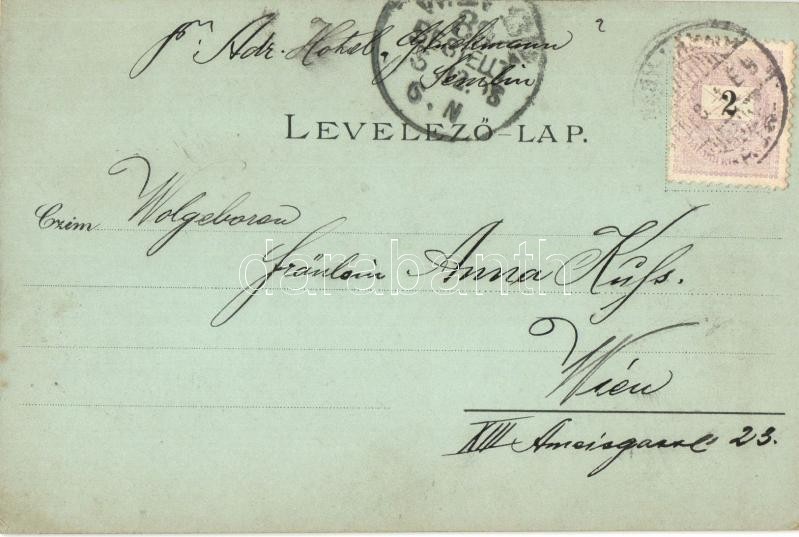 pr. Adr. Hotel „Glückmann
Semlin
?
LEVELEZŐ-LAP.
2
Czim
Wolgeboren
Fräulein Anna Kuss.
Wien
XIII Ameisgasse 23.
darabanth